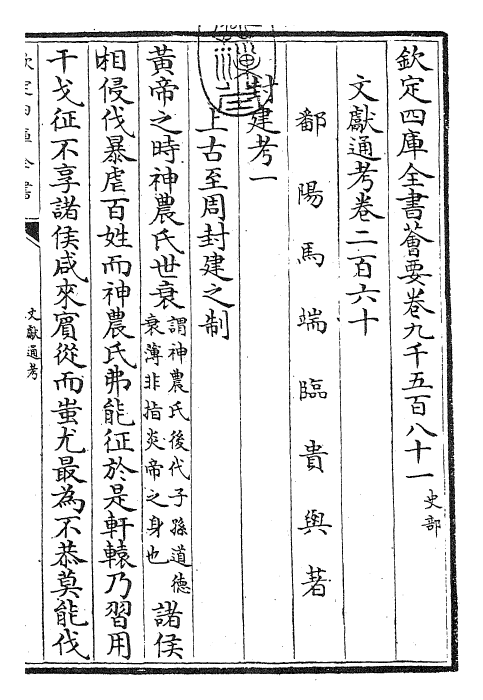 欽定四庫全書薈要卷九千五百八十一 史部
文獻通考卷二百六十
鄱陽馬端臨貴與著
封建考一
上古至周封建之制
黃帝之時神農氏世衰謂神農氏後代子孫道德衰薄非指炎帝之身也諸侯
相侵伐暴虐百姓而神農氏弗能征於是軒轅乃習用
干戈征不享諸侯咸來賓從而蚩尤最為不恭莫能伐
欽定四庫全書
文獻通考